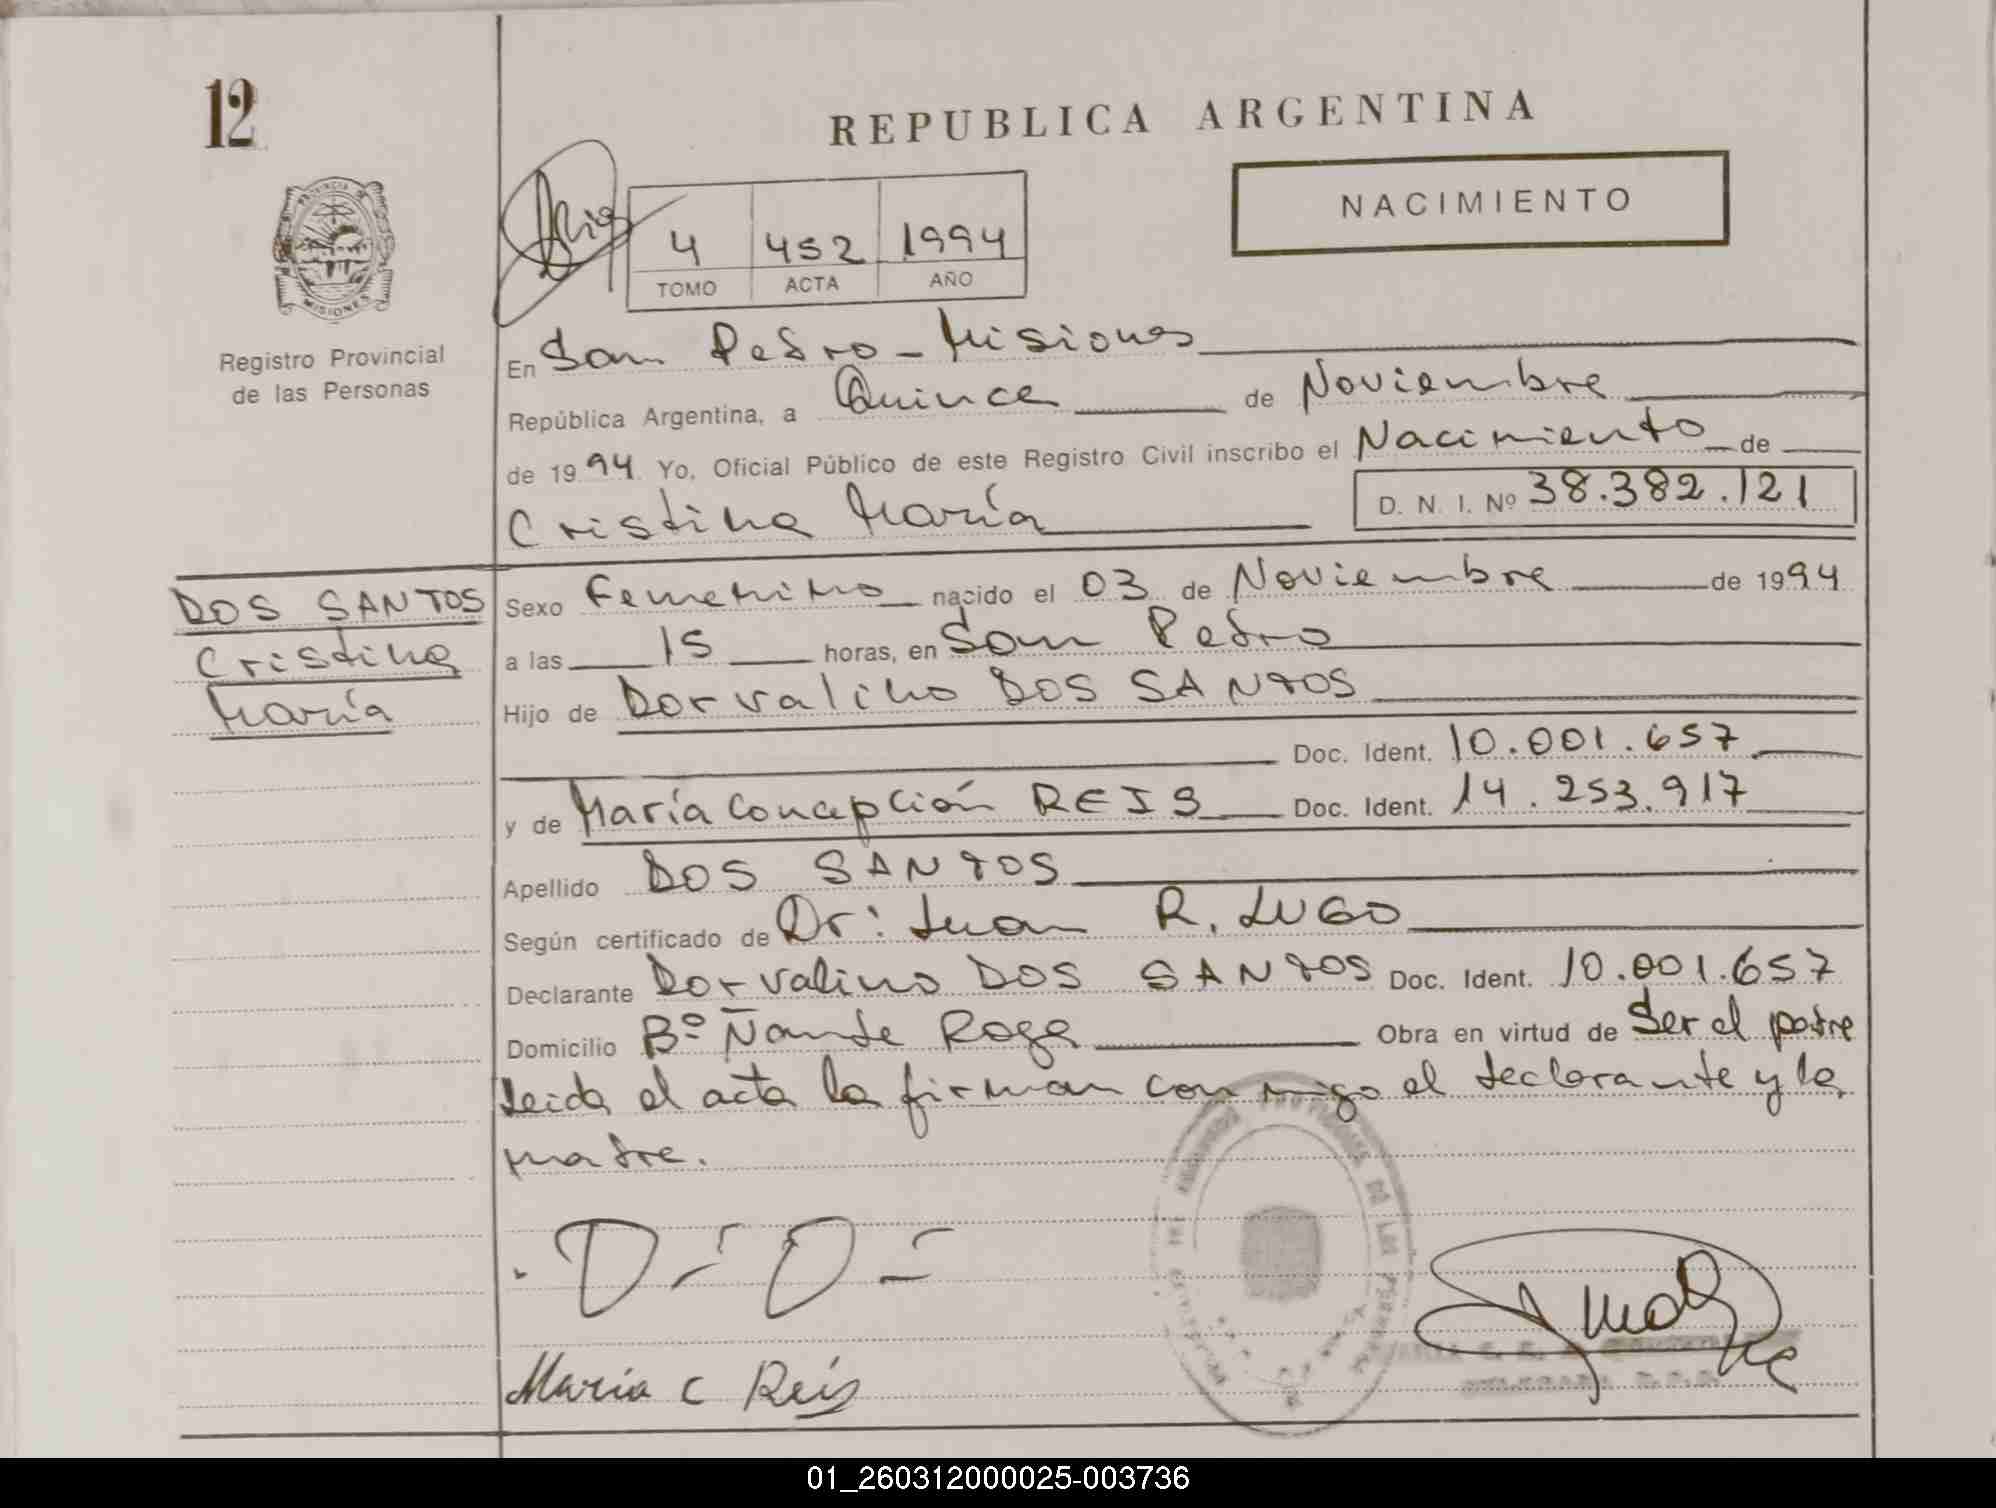 12
REPUBLICA ARGENTINA
NACIMIENTO
PROVINCIA DE
MISIONES
4 452 1994
TOMO ACTA AÑO
Registro Provincial
de las Personas
En San Pedro - Misiones
República Argentina, a Quince de Noviembre
de 1994 Yo, Oficial Público de este Registro Civil inscribo el Nacimiento de
Cristina María D. N. I. Nº 38.382.121
DOS SANTOS
Cristina
María
Sexo Femenino nacido el 03 de Noviembre de 1994
a las 15 horas, en San Pedro
Hijo de Dorvalino DOS SANTOS
Doc. Ident. 10.001.657
y de María Concepción REIS Doc. Ident. 14.253.917
Apellido DOS SANTOS
Según certificado de Dr: Juan R. LUGO
Declarante Dorvalino DOS SANTOS Doc. Ident. 10.001.657
Domicilio Bº Ñande Roga Obra en virtud de Ser el padre
Leida el acta la firman con migo el declarante y la
madre.
D - O -
María C Reis
01_260312000025-003736